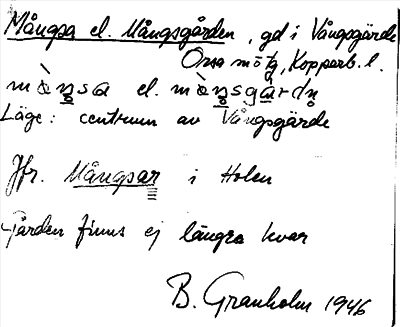 Mångsa el. Mångsgården, gd i Vångsgärde
Orsa sn, Kopparb. l.
el.
Läge: centrum av Vångsgärde
Jfr. Mångsar i Holen
Gården finns ej längre kvar
B. Granholm 1946